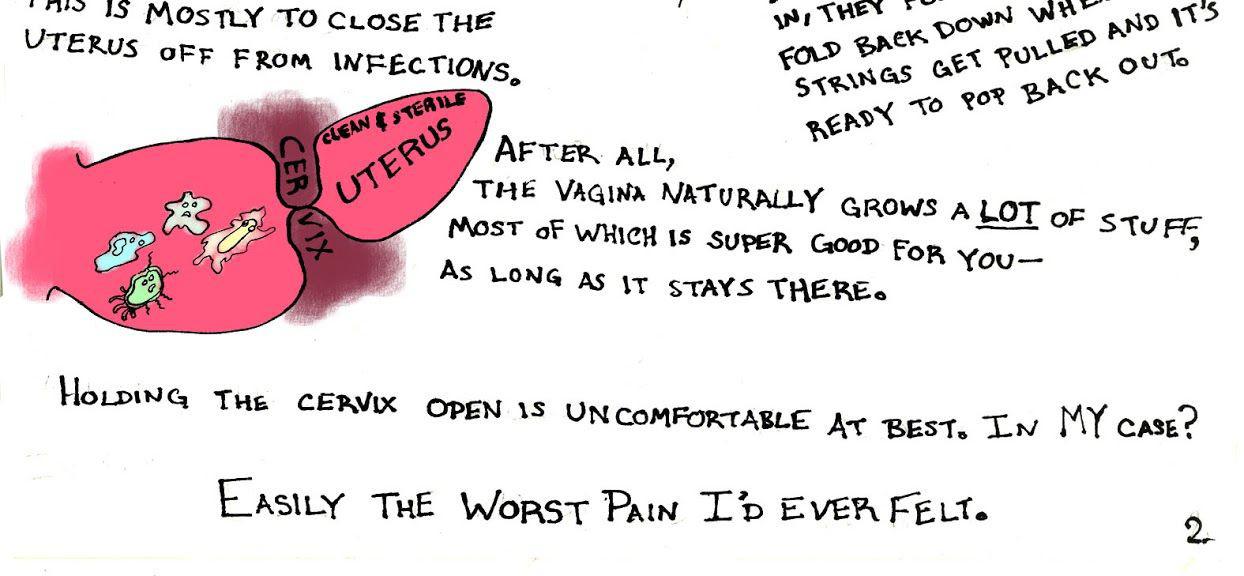 THIS IS MOSTLY TO CLOSE THE
UTERUS OFF FROM INFECTIONS.
IN, THEY
FOLD BACK DOWN
STRINGS GET PULLED AND IT'S
READY TO POP BACK OUT.
CLEAN & STERILE
UTERUS
CERVIX
AFTER ALL,
THE VAGINA NATURALLY GROWS A LOT OF STUFF,
MOST OF WHICH IS SUPER GOOD FOR YOU—
AS LONG AS IT STAYS THERE.
HOLDING THE CERVIX OPEN IS UNCOMFORTABLE AT BEST. IN MY CASE?
EASILY THE WORST PAIN I'D EVER FELT.
2